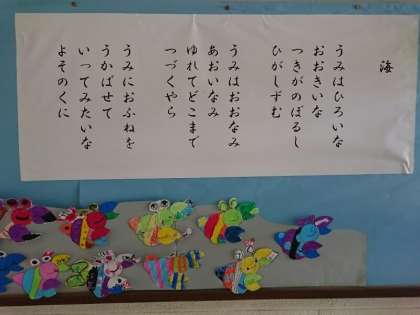 海
うみはひろいな
おおきいな
つきがのぼるし
ひがしずむ
うみはおおなみ
あおいなみ
ゆれてどこまで
つづくやら
うみにおふねを
うかばせて
いってみたいな
よそのくに